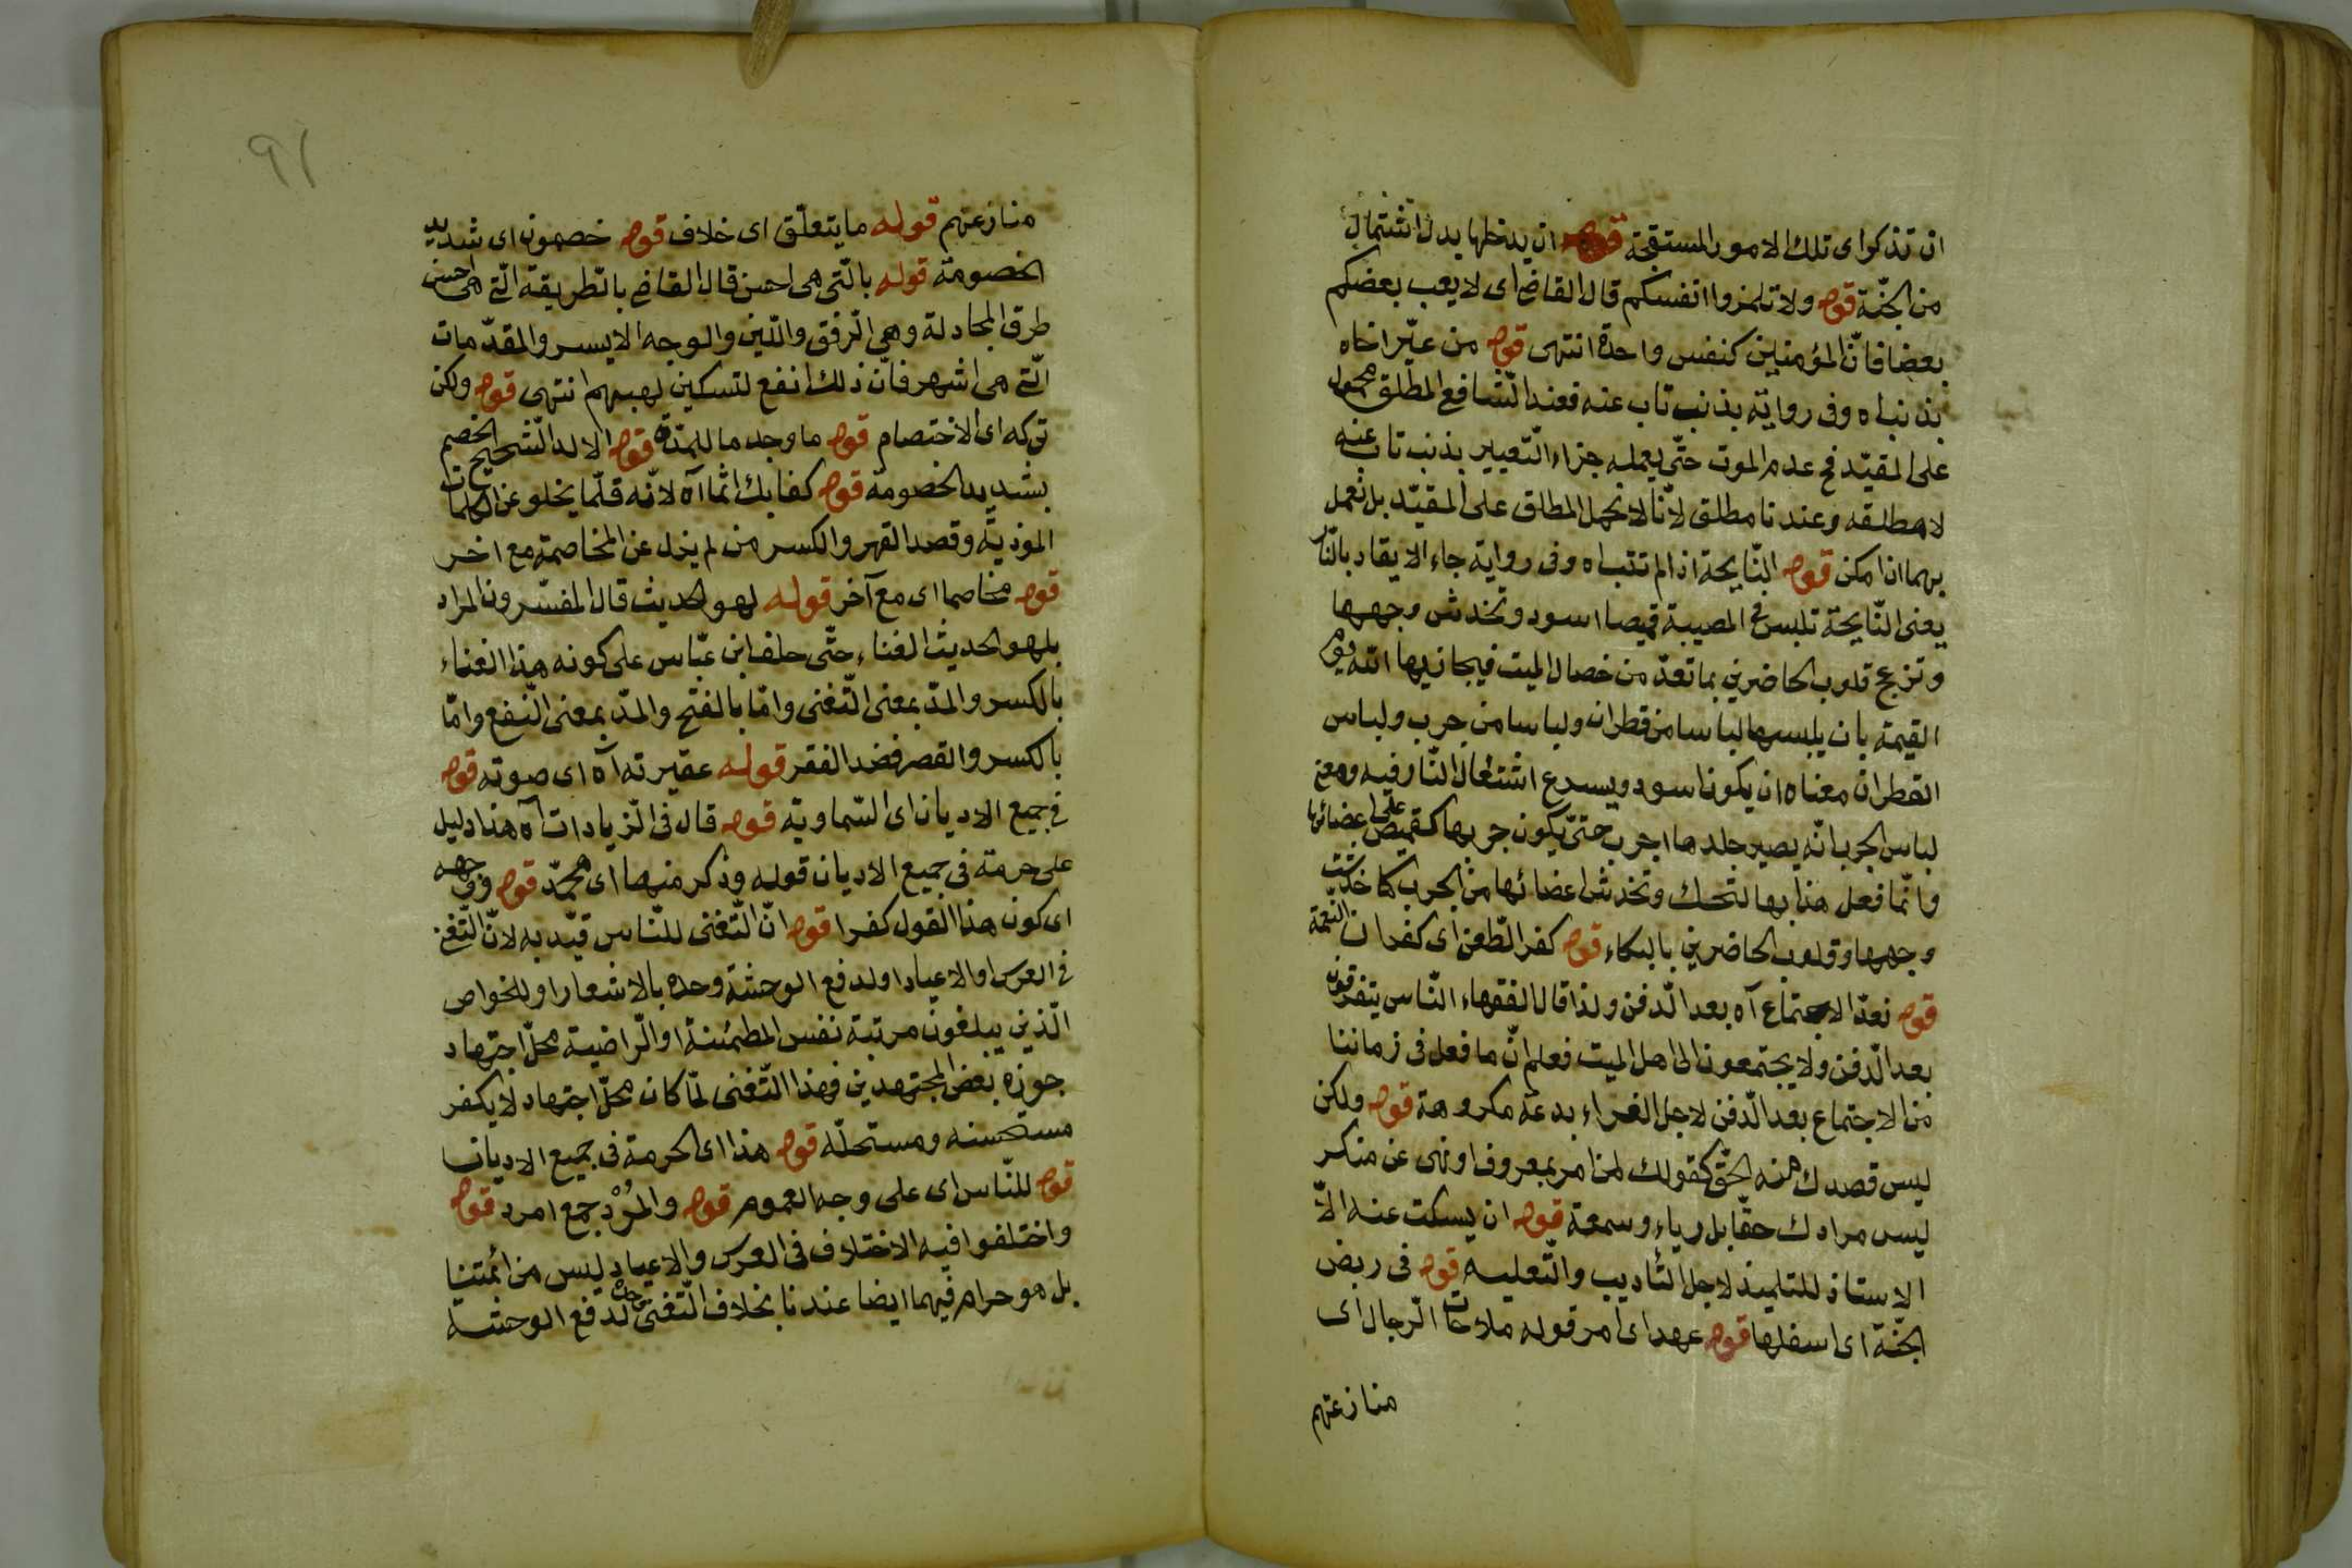 ان تذكروا ى تلك الامور المستقبحة قوله ان يدخلها بدل اشتمال
من الجنّة قوله ولا تلمزوا انفسكم قال القاضى اى لا يعب بعضكم
بعضا فانّ المؤمنين كنفس واحدة انتهى قوله من عيّر اخاه
بذنب اه وفى رواية بذنب تاب عنه فعند الشّافع المطلق محمول
على المقيّد فح عدم الموت حتّى يعمله جزاء التّعيير بذنب تاب عنه
لا مطلقه وعندنا مطلق لانّا لا نحمل المطلق على المقيّد بل نعمل
بهما ان امكن قوله النّايحة اذا لم تتب اه وفى رواية جاء الا يقاد بالنّار
يعنى النّايحة تلبس فى المصيبة قميصا اسود وتخدش وجهها
وتزعج قلوب الحاضرين بما تعدّ من خصال الميت فيجازيها اللّه يوم
القيمة بان يلبسها لباسا من قطران ولباسا من جرب ولباس
القطران معناه ان يكون اسود ويسرع اشتعال النّار فيه ومعنى
لباس الجرب انّه يصير جلدها اجرب حتّى يكون جربها كقميص على اعضائها
وانّما فعل هذا بها لتحك وتخدش اعضائها من الجرب كما خدشت
وجهها وقلوب الحاضرين بالبكاء قوله كفر الطّعن اى كفران النّعمة
قوله نعدّ الاجتماع آه بعد الدّفن ولذا قال الفقهاء النّاس يتفرقون
بعد الدّفن ولا يجتمعون الى اهل الميت فعلم انّ ما فعل فى زماننا
من الاجتماع بعد الدّفن لاجل الغراء بدعة مكروهة قوله ولكن
ليس قصدك منه الحقّ كقولك لمن امر بمعروف او نهى عن منكر
ليس مرادك حقّا بل رياء وسمعة قوله ان يسكت عنه الاّ
الاستاذ للتلميذ لاجل التأديب والتّعليم قوله فى ربض
الجنّة اى اسفلها قوله عهد اى امر قوله ملاحات الرّجال اى
منازعتهم
91
منازعتهم قوله ما يتعلّق اى خلاف قوله خصمون اى شديد
الخصومة قوله بالّتى هى احسن قال القاضى بالطّريقة الّتى هى احسن
طرق المجادلة وهى الرّفق واللّين والوجه الايسر والمقدّمات
الّتى هى اشهر فانّ ذلك انفع لتسكين لهبهم انتهى قوله ولكن
تركه اى الاختصام قوله ما وجد ما للمدّة قوله الالد الشّحيح الخصم
بشديد الخصومة قوله كفا بك اثما آه لانّه قلّما يخلو عن الكلمات
الموذيّة وقصد القهر والكسر من لم يزل عن المخاصمة مع اخر
قوله مخاصما اى مع آخر قوله لهو الحديث قال المفسّرون المراد
بلهو الحديث الغناء حتّى حلف ابن عبّاس على كونه هذا الغناء
بالكسر والمدّ بمعنى التّغنى وامّا بالفتح والمدّ بمعنى النّفع وامّا
بالكسر والقصر فضد الفقر قوله عقيرته آه اى صوته قوله
فى جميع الاديان اى السّماويّة قوله قال فى الزّيادات آه هذا دليل
على حرمته فى جميع الاديان قوله وذكر منها اى محمّد قوله وفى وجهه
اى كون هذا القول كفرا قوله انّ التّغنى للنّاس قيّد به لانّ التّغنى
فى العرس او الاعياد او لدفع الوحشة وحده بالاشعار او للخواص
الّذين يبلغون مرتبة نفس المطمئنّة او الرّاضية محلّ اجتهاد
جوزه بعض المجتهدين فهذا التّغنى لمّا كان محلّ اجتهاد لا يكفر
مستحسنه ومستحلّه قوله هذا اى الحرمة فى جميع الاديان
قوله للنّاس اى على وجه العموم قوله والمُرْد جمع امرد قوله
واختلفوا فيه الاختلاف فى العرس والاعياد ليس من ائمتنا
بل هو حرام فيهما ايضا عندنا بخلاف التّغنى وحده لدفع الوحشة